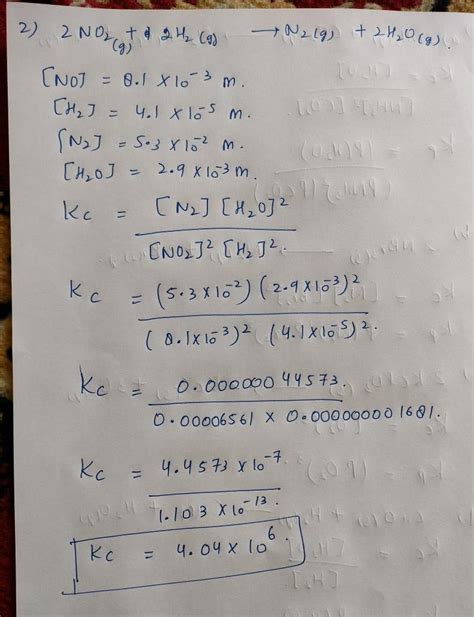 2) 2NO2(g) + 2H2(g) → N2(g) + 2H2O(g).
[NO] = 8.1 × 10^-3 m.
[H2] = 4.1 × 10^-5 m.
[N2] = 5.3 × 10^-2 m.
[H2O] = 2.9 × 10^-3 m.
Kc = [N2] [H2O]^2
[NO2]^2 [H2]^2.
Kc = (5.3 × 10^-2) (2.9 × 10^-3)^2
(8.1 × 10^-3)^2 (4.1 × 10^-5)^2.
Kc = 0.00000044573.
0.00006561 × 0.000000001681.
Kc = 4.4573 × 10^-7
1.103 × 10^-13.
Kc = 4.04 × 10^6.